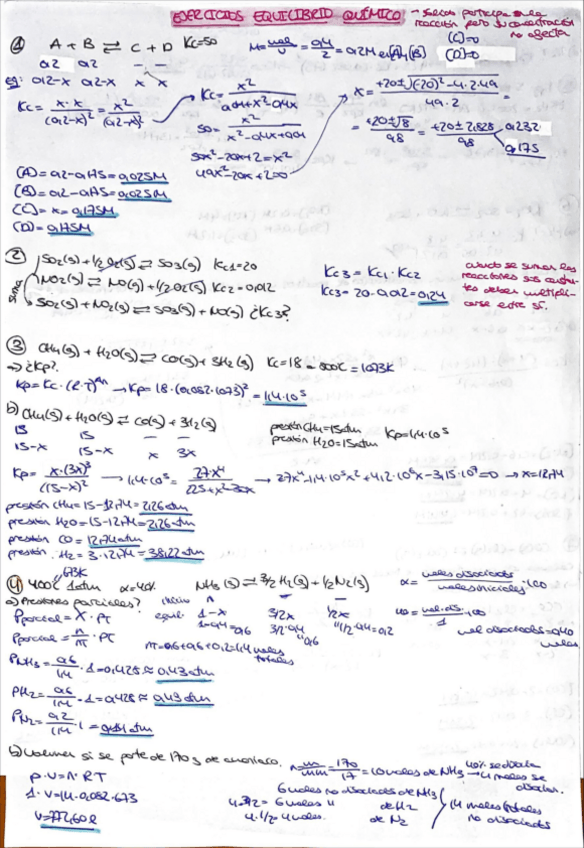 EJERCICIOS EQUILIBRIO QUÍMICO
→ Sólidos participan en la
reacción pero su concentración
no afecta
① A + B ⇌ C + D Kc=50
M=mol/V = 0,4/2 = 0,2M en (A), (B)
(C)=0
(D)=0
0,2 0,2 — —
eq: 0,2-x 0,2-x x x
Kc = x·x/(0,2-x)² = x²/(0,2-x)²
Kc = x²/0,04+x²-0,4x
50 = x²/x²-0,4x+0,04
50x²-20x+2=x²
49x²-20x+2=0
x = +20±√(-20)²-4·2·49/49·2
= +20±√8/98 = +20±2,828/98
0,232
0,175
(A)=0,2-0,175=0,025M
(B)=0,2-0,175=0,025M
(C)=x=0,175M
(D)=0,175M
② SO2(g)+1/2O2(g) ⇌ SO3(g) Kc1=20
NO2(g) ⇌ NO(g)+1/2O2(g) Kc2=0,012
SO2(g)+NO2(g) ⇌ SO3(g)+NO(g) ¿Kc3?
Kc3 = Kc1·Kc2
Kc3 = 20·0,012=0,24
cuando se suman las
reacciones sus
deben multipli-
carse entre sí.
③ CH4(g) + H2O(g) ⇌ CO(g) + 3H2(g) Kc=18 - 800ºC = 1073K
→ ¿Kp?
Kp=Kc·(R·T)^Δn → Kp=18·(0,082·1073)² = 1,4·10⁵
b) CH4(g)+H2O(g) ⇌ CO(g)+3H2(g)
15 15 — —
15-x 15-x x 3x
presión CH4=15atm
presión H2O=15atm
Kp=1,4·10⁵
Kp= x·(3x)³/(15-x)² → 1,4·10⁵ = 27x⁴/225+x²-30x → 27x⁴-1,4·10⁵x²+4,2·10⁶x-3,15·10⁷=0 → x=12,74
presión CH4=15-12,74=2,26atm
presión H2O=15-12,74=2,26atm
presión CO=12,74atm
presión H2=3·12,74=38,22atm
④ 400ºC 1atm α=40%
673K
NH3(g) ⇌ 3/2H2(g)+1/2N2(g)
α = moles disociados/moles iniciales·100
a) Presiones parciales?
inicio 1 — —
equi 1-x 3/2x 1/2x
1-0,4=0,6 3/2·0,4=0,6 1/2·0,4=0,2
40 = mol dis./1·100
mol disociados=0,40
moles
Pparcial = X·PT
Pparcial = n/nT·PT
nT=0,6+0,6+0,2=1,4 moles
totales
PNH3 = 0,6/1,4·1=0,428≈0,43atm
PH2 = 0,6/1,4·1=0,428≈0,43atm
PN2 = 0,2/1,4·1=0,14atm
b) Volumen si se parte de 170g de amoníaco.
n=m/mm=170/17=10 moles de NH3 → 4 moles se
disocian.
P·V=n·RT
1·V=14·0,082·673
V=772,60 l
6 moles no disociados de NH3
4·3/2=6 moles de H2
4·1/2= de N2
14 moles totales
no disociados